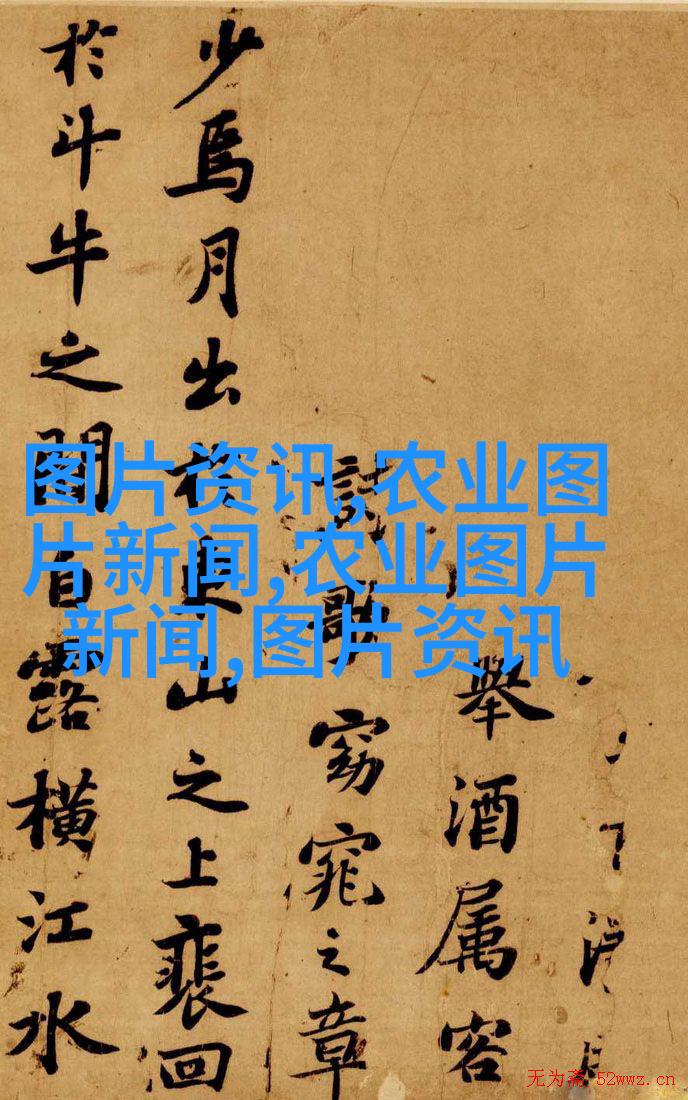 舉酒属客
歌窈窕之章
少焉月出於東山之上裴回
於斗牛之間白露橫江水
图片资讯,农业图
片新闻,农业图片
新闻,图片资讯
无为斋 52wwz.cn